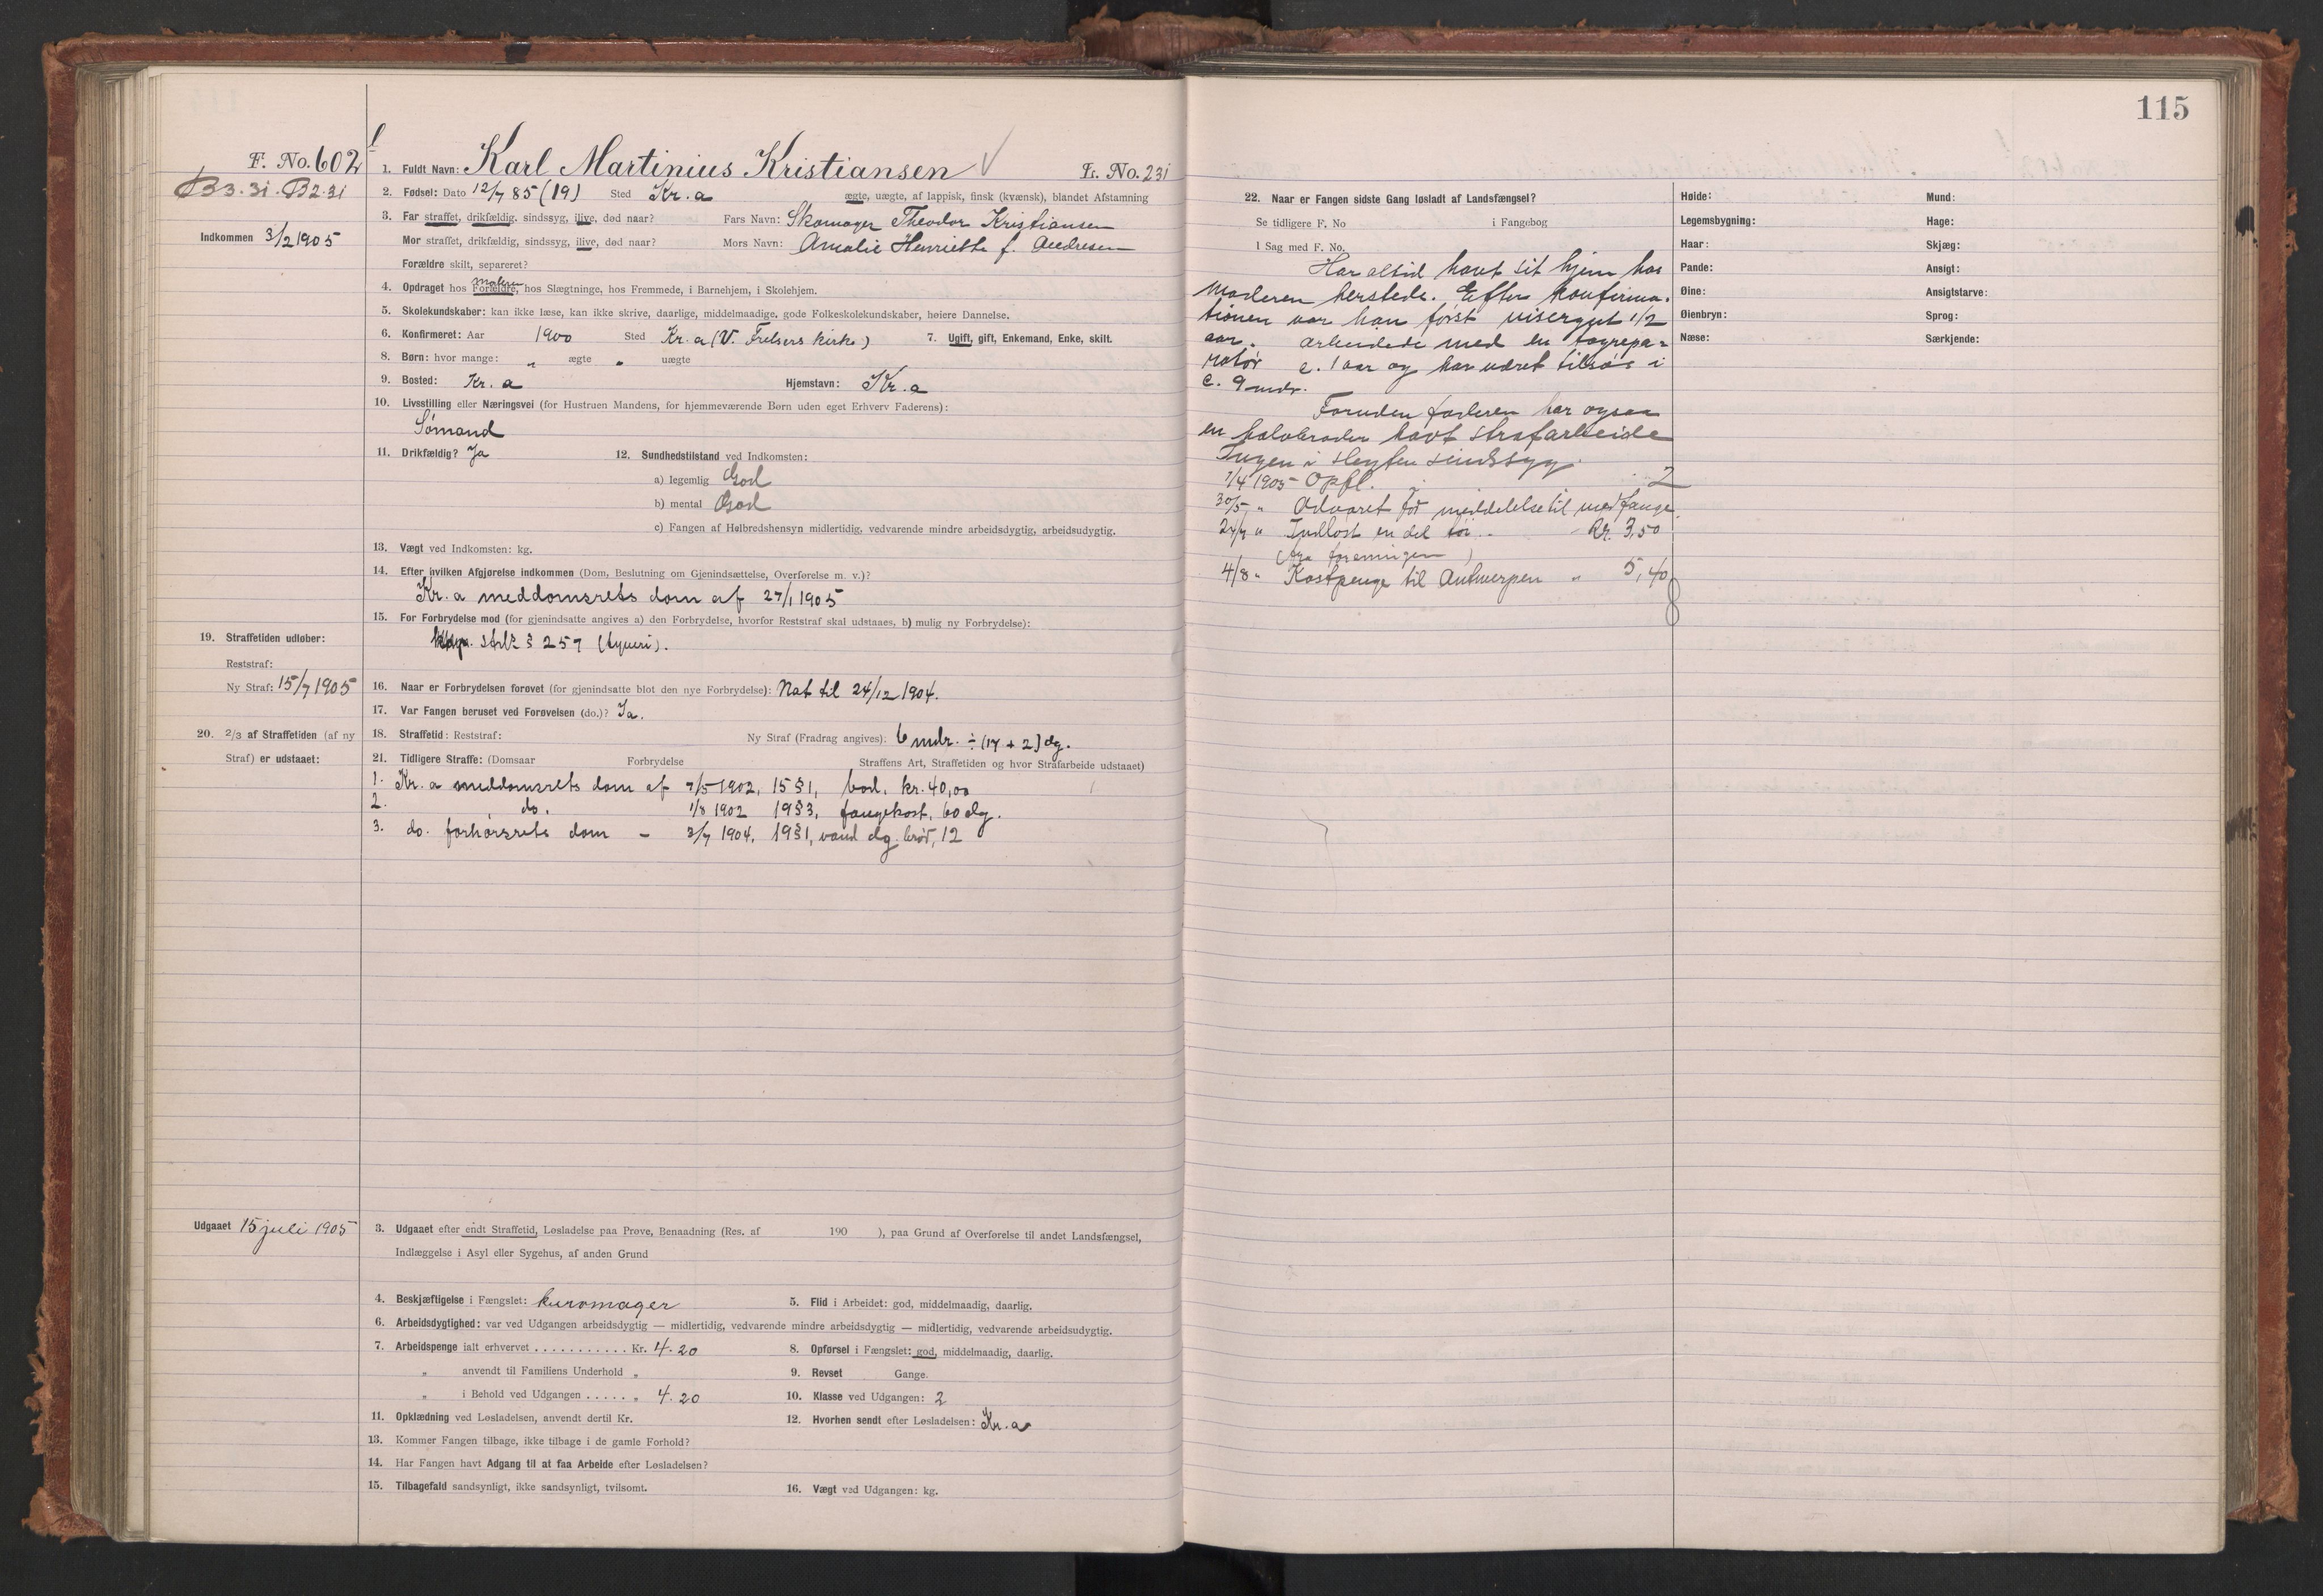 115
F. No. 602
1. Fuldt Navn: Karl Martinius Kristiansen L. No. 231
B3.31. B2.31
2. Fødsel: Dato 12/7 85 (19) Sted Kr.a ægte, uægte, af lappisk, finsk (kvænsk), blandet Afstamning
Indkommen 3/2 1905
3. Far straffet, drikfældig, sindssyg, ilive, død naar? Fars Navn: Skomager Theodor Kristiansen
Mor straffet, drikfældig, sindssyg, ilive, død naar? Mors Navn: Amalie Henriette f. Andresen
Forældre skilt, separeret?
4. Opdraget hos Forældre, moderen hos Slægtninge, hos Fremmede, i Barnehjem, i Skolehjem.
5. Skolekundskaber: kan ikke læse, kan ikke skrive, daarlige, middelmaadige, gode Folkeskolekundskaber, høiere Dannelse.
6. Konfirmeret: Aar 1900 Sted Kr.a (V. Frelsers kirke) 7. Ugift, gift, Enkemand, Enke, skilt.
8. Børn: hvor mange: " ægte " uægte
9. Bosted: Kr.a Hjemstavn: Kr.a
10. Livsstilling eller Næringsvei (for Hustruen Mandens, for hjemmeværende Børn uden eget Erhverv Faderens):
Sømand
11. Drikfældig? Ja 12. Sundhedstilstand ved Indkomsten:
a) legemlig God
b) mental God
c) Fangen af Helbredshensyn midlertidig, vedvarende mindre arbeidsdygtig, arbeidsudygtig.
13. Vægt ved Indkomsten: kg.
14. Efter hvilken Afgjørelse indkommen (Dom, Beslutning om Gjenindsættelse, Overførelse m. v.)?
Kr.a meddomsrets dom af 27/1 1905
15. For Forbrydelse mod (for gjenindsatte angives a) den Forbrydelse, hvorfor Reststraf skal udstaaes, b) mulig ny Forbrydelse):
strl. § 257 (tyveri).
19. Straffetiden udløber:
Reststraf:
Ny Straf: 15/7 1905
16. Naar er Forbrydelsen forøvet (for gjenindsatte blot den nye Forbrydelse): Nat til 24/12 1904.
17. Var Fangen beruset ved Forøvelsen (do.)? Ja.
20. 2/3 af Straffetiden (af ny
Straf) er udstaaet:
18. Straffetid: Reststraf: Ny Straf (Fradrag angives): 6 mdr. ÷ (17 + 2) dg.
21. Tidligere Straffe: (Domsaar Forbrydelse Straffens Art, Straffetiden og hvor Strafarbeide udstaaet)
1. Kr.a meddomsrets dom af 7/5 1902, 15 § 1, bod, kr. 40,00
2. do. 1/8 1902 19 § 3, fangekost, 60 dg.
3. do. forhørsrets dom - 2/7 1904, 19 § 1, vand dg. brød, 12
Udgaaet 15 juli 1905
3. Udgaaet efter endt Straffetid, Løsladelse paa Prøve, Benaadning (Res. af 190 ), paa Grund af Overførelse til andet Landsfængsel,
Indlæggelse i Asyl eller Sygehus, af anden Grund
4. Beskjæftigelse i Fængslet: kurvmager 5. Flid i Arbeidet: god, middelmaadig, daarlig.
6. Arbeidsdygtighed: var ved Udgangen arbeidsdygtig — midlertidig, vedvarende mindre arbeidsdygtig — midlertidig, vedvarende arbeidsudygtig.
7. Arbeidspenge ialt erhvervet . . . . . . . . . . . Kr. 4.20 8. Opførsel i Fængslet: god, middelmaadig, daarlig.
" anvendt til Familiens Underhold " 9. Revset Gange.
" i Behold ved Udgangen . . . . . " 4.20 10. Klasse ved Udgangen: 2
11. Opklædning ved Løsladelsen, anvendt dertil Kr. 12. Hvorhen sendt efter Løsladelsen: Kr.a
13. Kommer Fangen tilbage, ikke tilbage i de gamle Forhold?
14. Har Fangen havt Adgang til at faa Arbeide efter Løsladelsen?
15. Tilbagefald sandsynligt, ikke sandsynligt, tvilsomt. 16. Vægt ved Udgangen: kg.
22. Naar er Fangen sidste Gang løsladt af Landsfængsel?
Se tidligere F. No i Fangebog
I Sag med F. No.
Har altid havt sit hjem hos
moderen hersteds. Efter konfirma-
tionen var han først visergut 1/2
aar. arbeidede med en
c. 1 aar og har været tilsøs i
c. 9 mdr.
Foruden faderen har ogsaa
en halvbroder havt strafarbeide
Ingen i slegten sindssyg.
1/4 1905 Opfl. 2
30/5 " Advaret for meddelelse til medfange.
24/7 " Indløst en del tøi .. Kr. 3,50
foreningen)
4/8 " Kostpenge til Antwerpen " 5,40
Høide: Mund:
Legemsbygning: Hage:
Haar: Skjæg:
Pande: Ansigt:
Øine: Ansigtstarve:
Øienbryn: Sprog:
Næse: Særkjende: